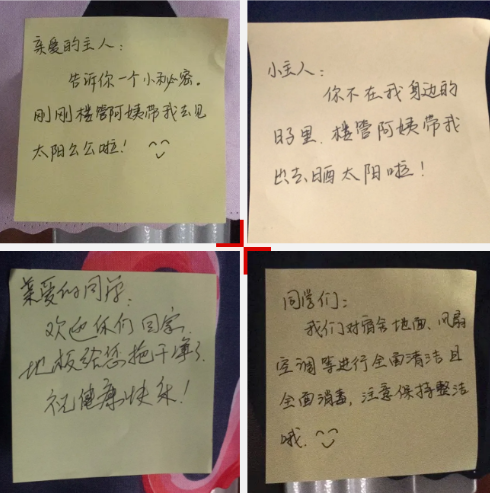 亲爱的主人：
告诉你一个小秘密。
刚刚楼管阿姨带我去见
太阳公公啦！
小主人：
你不在我身边的
日子里，楼管阿姨带我
出去晒太阳啦！
亲爱的同学：
欢迎你们回家，
地板给您拖干净了，
祝健康快乐！
同学们：
我们对宿舍地面、风扇
空调等进行全面清洁且
全面消毒，注意保持整洁
哦.